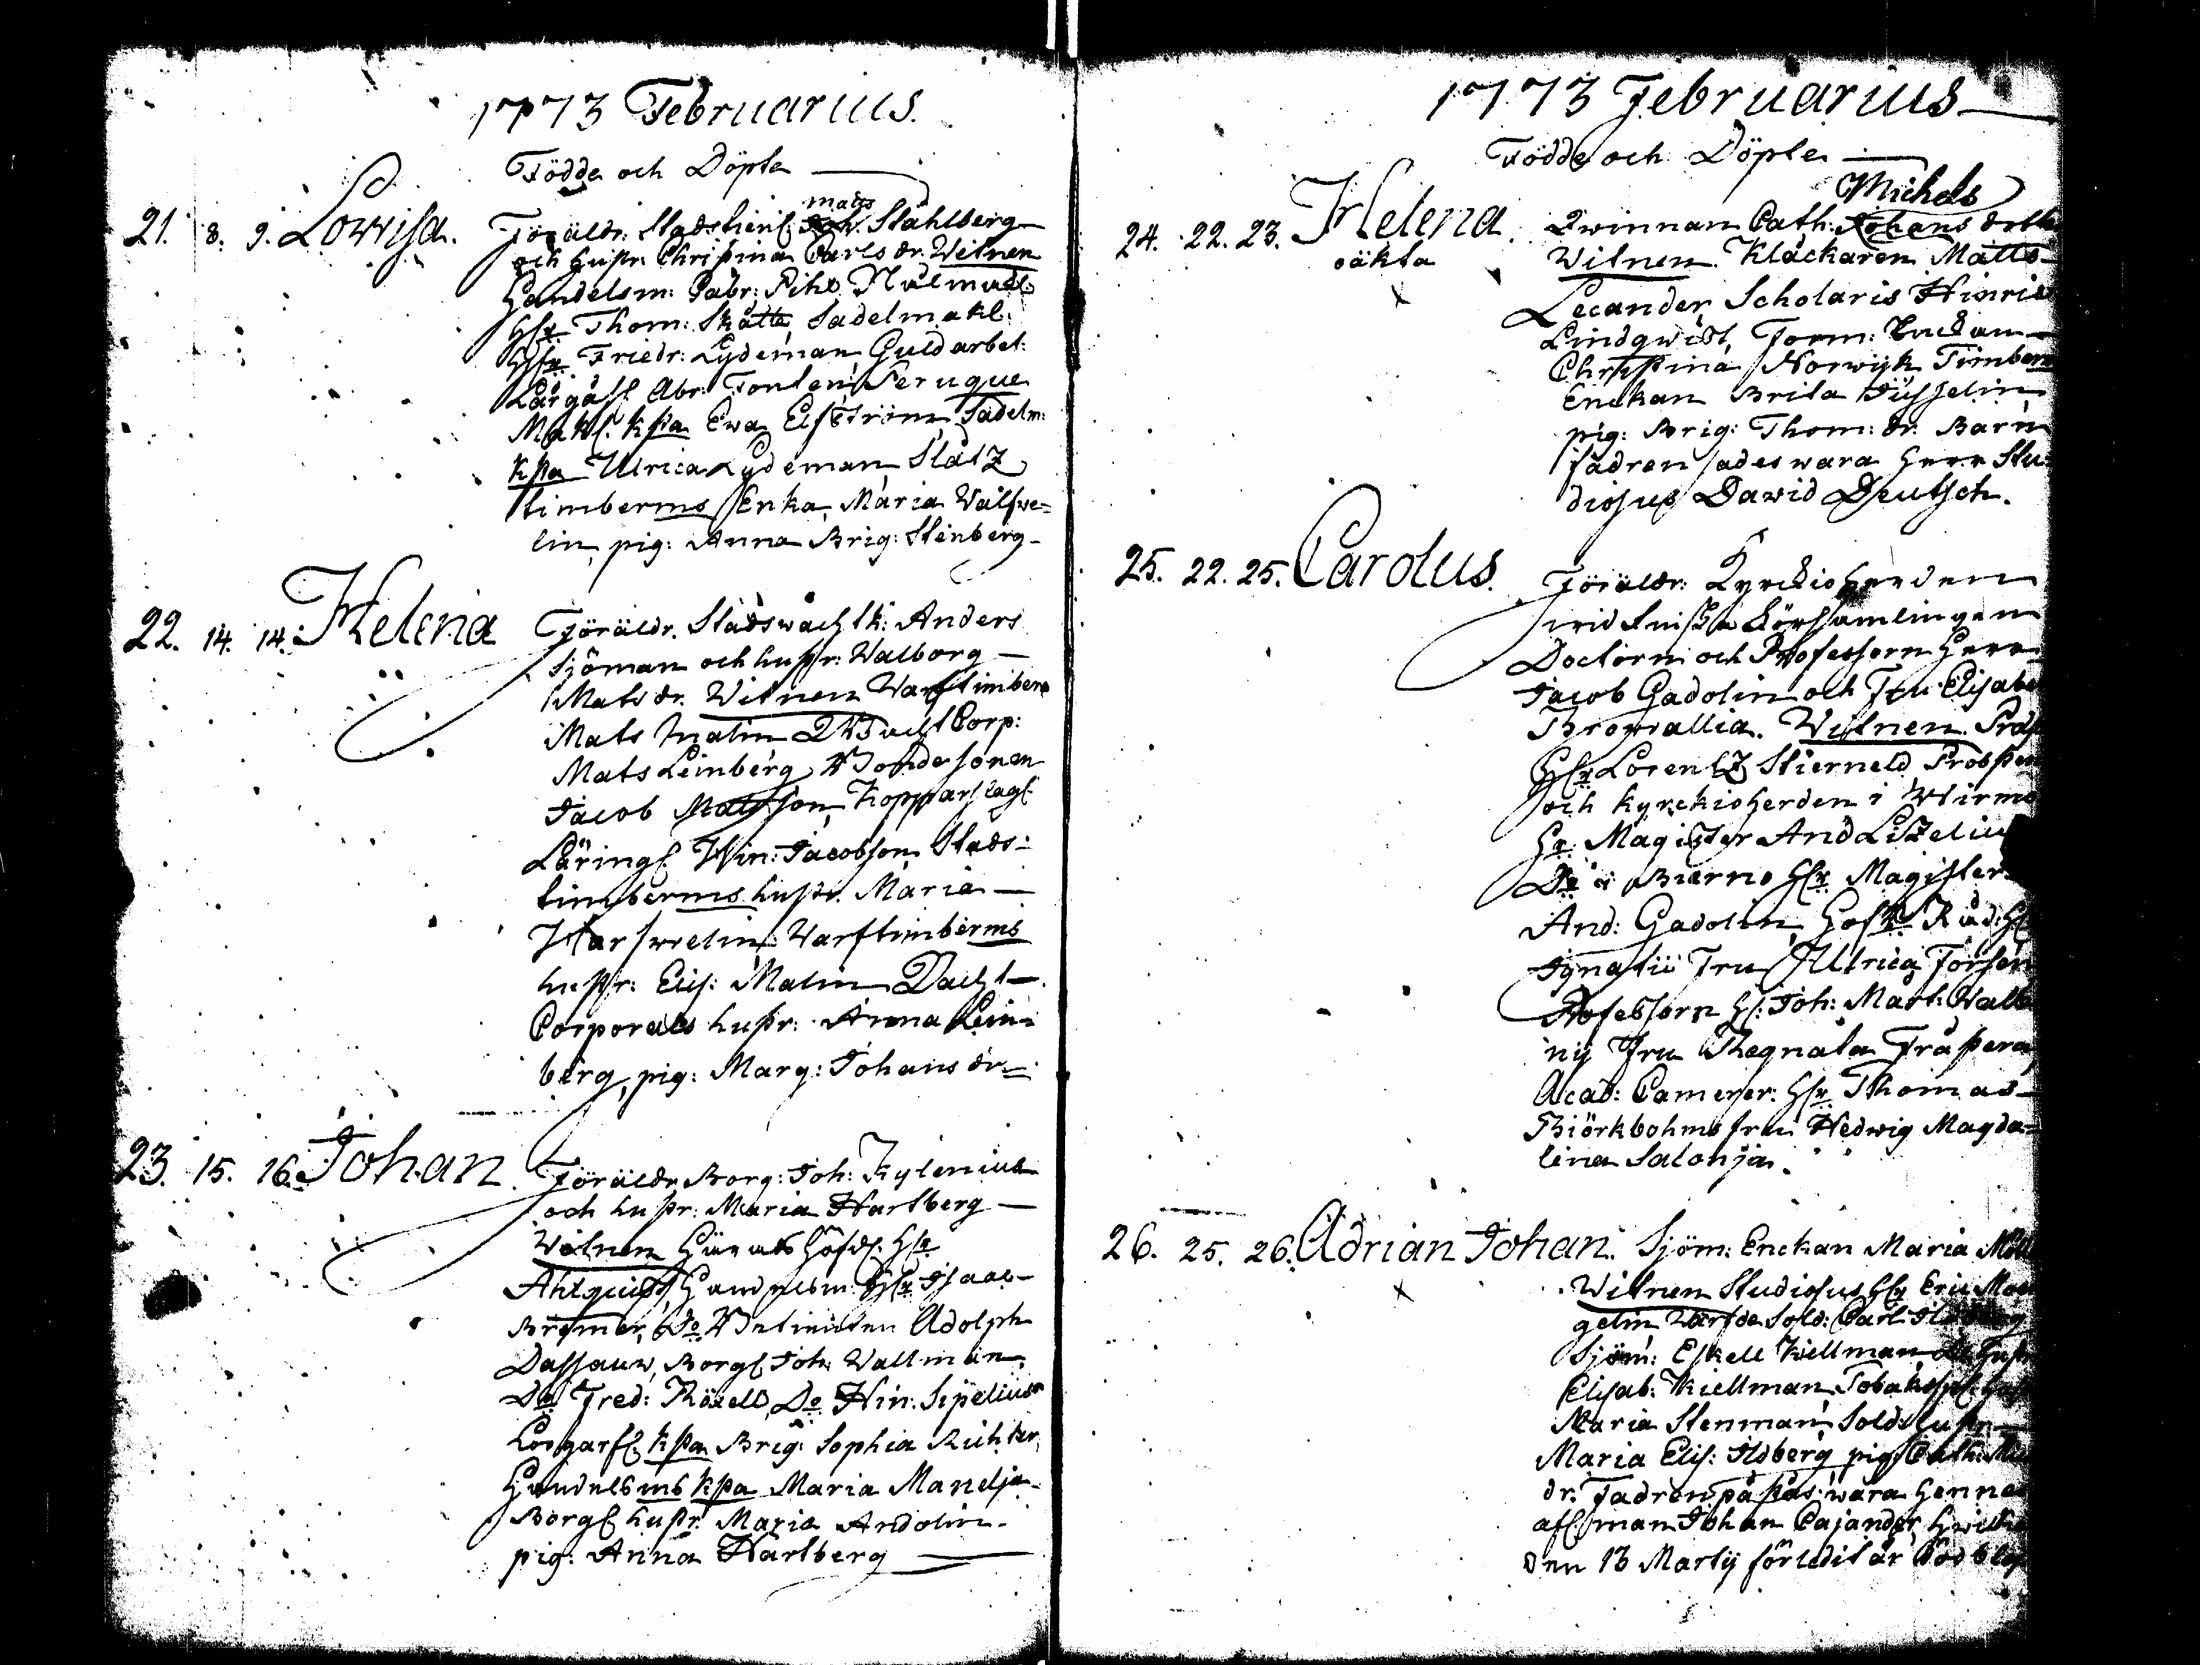 1773 Februarius.
Födde och Döpte
21. 8. 9. Lowisa. Föräldr: Stadstien: Matts Ståhlberg
och hustr. Christina Carls dr. Witnen
Handelsm: Gabr: Piho
Hr Thom: Skätte, Sadelmak.
Hr Friedr: Lydeman Guldarbet:
Lärgåss Abr: Peruque
Mak. kpa Ewa Elfström, Sadelm:
kpa Ulrica Lydeman
timberms Enka, Maria Walswe=
lin, pig: Anna Brig: Stenberg
22. 14. 14. Helena Föräldr. Stadswachtk: Anders
Sjöman och hustr: Walborg
Mats dr. Witnen Warftimberm
Mats Malin Wacht Corp:
Mats Leinberg, Bondesonen
Jacob Matsson, Kopparslag
Läring Hin: Jacobson Stads-
timberms hustr. Maria
Warftimberms
hustr: Elis: Malin Wacht
Corporals hustr: Anna Lein-
berg, pig: Marg: Johans dr
23. 15. 16. Johan. Föräldr Borg: Joh: Kylenius
och hustr: Maria Hartberg
Witnen Härads Höfd: Hr
Ahlquist, Handelsm: Hr Isaac
Bremer, Do Adolph
Dassauw, Borg: Joh: Wallman,
Do Fred: Do Hin: Sipelius
kpa Brig: Sophia Richter,
Handelsms kpa Maria Mandja
Borg hustr: Maria Andolin
pig: Anna Hartberg
1773 Februarius
Födde och Döpte
Michels
24. 22. 23. Helena. Qwinnan Cath: Johans dotter
oäkta Witnen. Klåckaren Matts
Lecander, Scholaris Hinric
Lindqwist, Enckan
Christina Norwijk Timberm
Enckan Brita
pig: Brig: Thom: dr. Barn
fadren sades wara Herr Stu-
diosus Dawid Deutsch.
25. 22. 25. Carolus. Föräldr: Kyrckioherden
wid Finska Församlingen
Doctorn och Professorn Herr
Jacob Gadolin och Fru Elisabet
Browallia. Witnen.
Hr Lorentz Stierneld Probsten
och Kyrckioherden i Wirmo
Hr: Magister And Lizelius
Do i Bierno Hr Magister
And: Gadolin, Hofr Råd: H
Ignatii Fru Ulrica Forsen
Professorn H: Joh: Mart: Walle
nij Fru Regnata Tråstera,
Acad: Camerer: Hr Thomas
Biörkbohms fru Hedwig Magda=
lena Salonja.
26. 25. 26. Adrian Johan. Sjöm: Enckan Maria
Witnen Studiosus Hr Eric
gelin Warfde Sold: Carl
Sjöm: Eskell Kiellman Do hustr
Elisab: Kiellman, Tobaks
Maria Stenman, Sold: hustr
Maria Elis: Isberg pig: Cath:
dr. Fadren påstås wara hennes
afl: man Johan Cajander hwilken
den 13 Martij förledit år